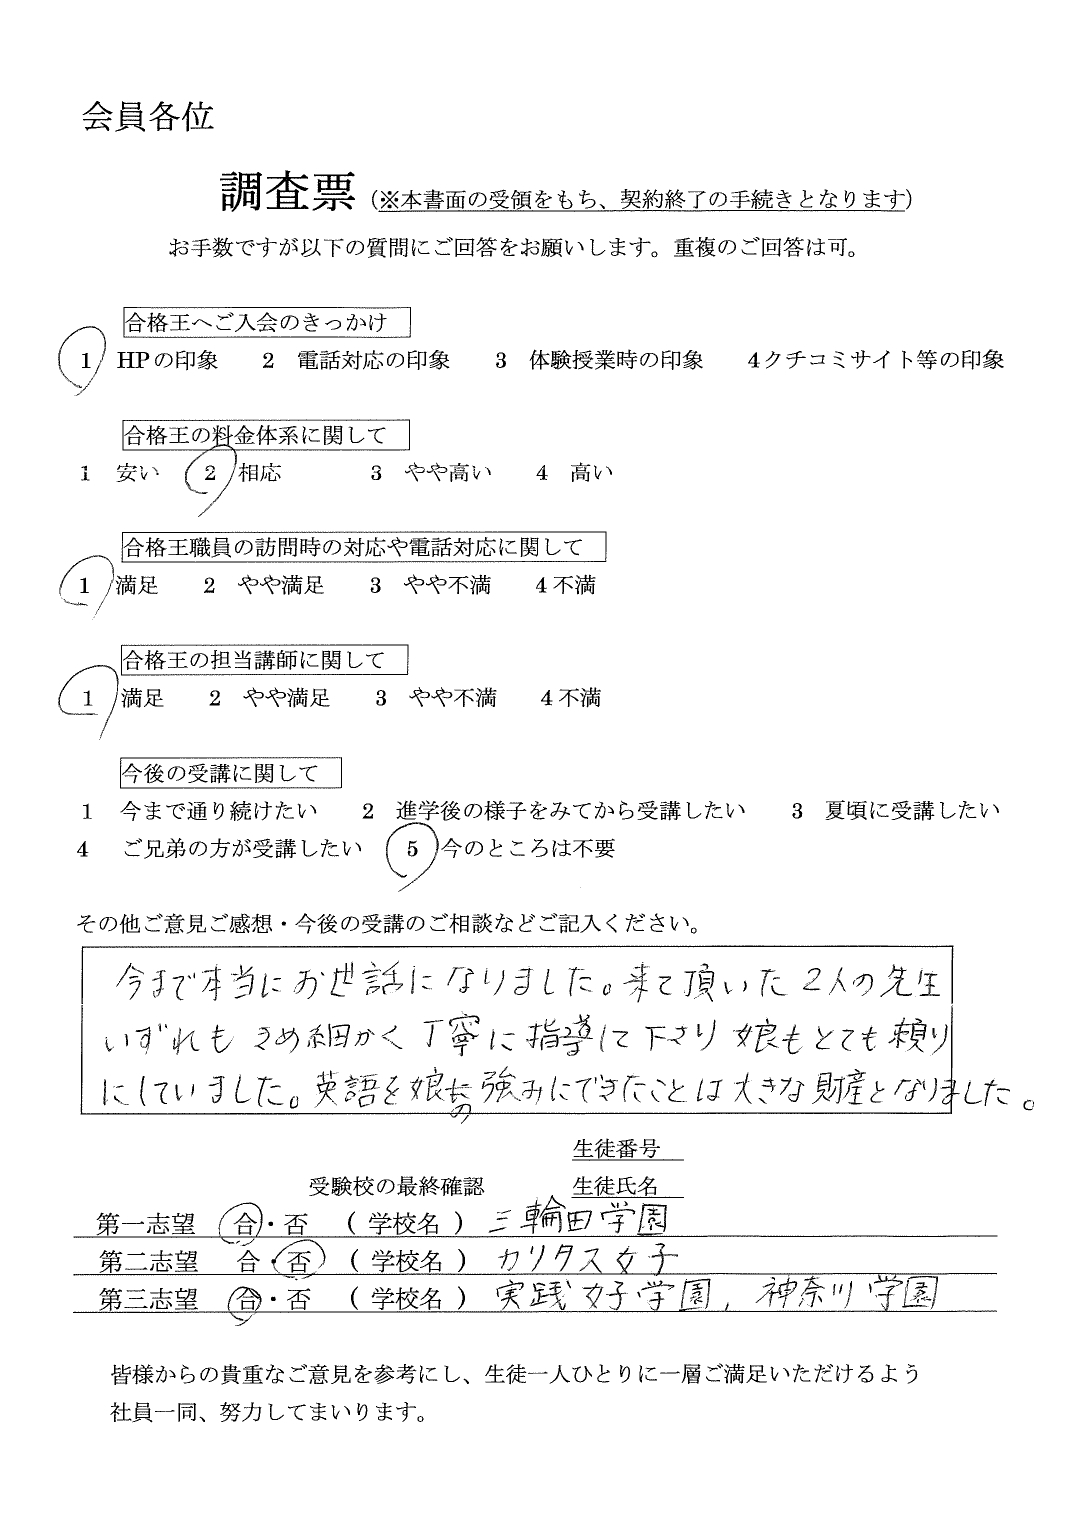 会員各位
調査票(※本書面の受領をもち、契約終了の手続きとなります)
お手数ですが以下の質問にご回答をお願いします。重複のご回答は可。
合格王へご入会のきっかけ
1 HPの印象 2 電話対応の印象 3 体験授業時の印象 4クチコミサイト等の印象
合格王の料金体系に関して
1 安い 2 相応 3 やや高い 4 高い
合格王職員の訪問時の対応や電話対応に関して
1 満足 2 やや満足 3 やや不満 4 不満
合格王の担当講師に関して
1 満足 2 やや満足 3 やや不満 4 不満
今後の受講に関して
1 今まで通り続けたい 2 進学後の様子をみてから受講したい 3 夏頃に受講したい
4 ご兄弟の方が受講したい 5 今のところは不要
その他ご意見ご感想・今後の受講のご相談などご記入ください。
今まで本当にお世話になりました。来て頂いた2人の先生
いずれも きめ細かく丁寧に指導して下さり 娘もとても頼り
にしていました。英語を娘の強みにできたことは大きな財産となりました。
生徒番号
受験校の最終確認 生徒氏名
第一志望 合・否 (学校名) 三輪田学園
第二志望 合・否 (学校名) カリタス女子
第三志望 合・否 (学校名) 実践女子学園, 神奈川学園
皆様からの貴重なご意見を参考にし、生徒一人ひとりに一層ご満足いただけるよう
社員一同、努力してまいります。